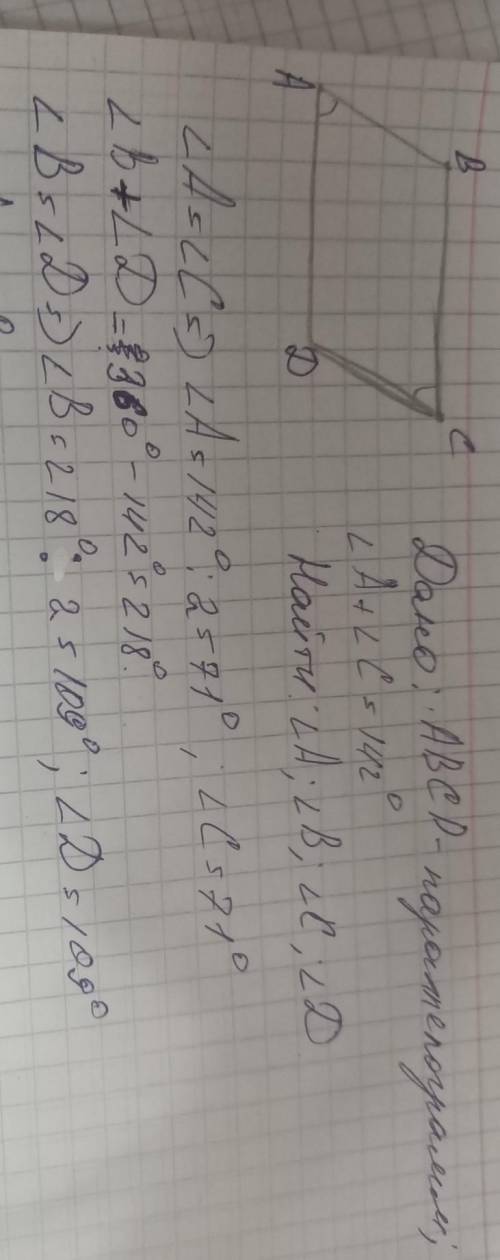 B
C
A
D
Дано: ABCD - параллелограмм;
∠A+∠C=142°
Найти: ∠A; ∠B; ∠C; ∠D
∠A=∠C=) ∠A=142°:2=71°; ∠C=71°
∠B+∠D=360°-142°=218°
∠B=∠D=) ∠B=218°:2=109°; ∠D=109°